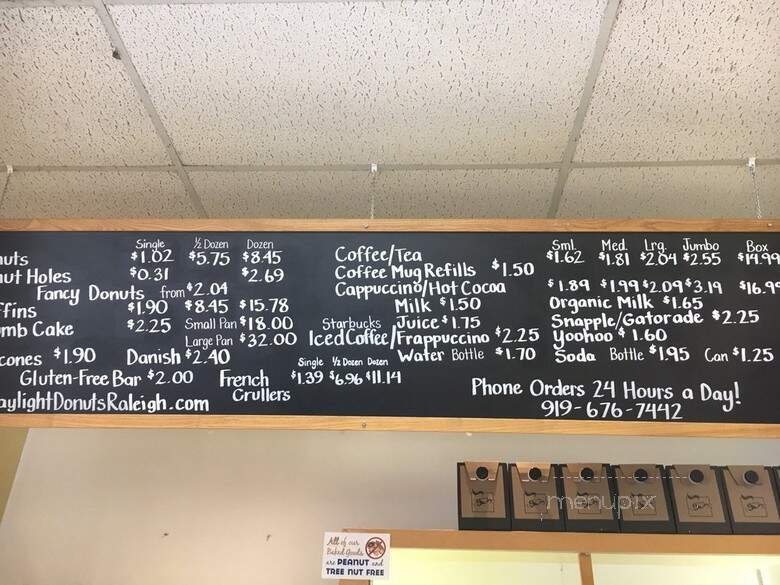 Single ½ Dozen Dozen
uts $1.02 $5.75 $8.45
ut Holes $0.31 $2.69
Fancy Donuts from $2.04
ffins $1.90 $8.45 $15.78
mb Cake $2.25 Small Pan $18.00
Large Pan $32.00
cones $1.90 Danish $2.40
Gluten-Free Bar $2.00
aylightDonutsRaleigh.com
Single ½ Dozen Dozen
French Crullers $1.39 $6.96 $11.14
Sml. Med. Lrg. Jumbo Box
Coffee/Tea $1.62 $1.81 $2.04 $2.55 $14.99
Coffee Mug Refills $1.50
Cappuccino/Hot Cocoa $1.89 $1.99 $2.09 $3.19 $16.99
Milk $1.50 Organic Milk $1.65
Juice $1.75 Snapple/Gatorade $2.25
Starbucks Iced Coffee/Frappuccino $2.25 Yoohoo $1.60
Water Bottle $1.70 Soda Bottle $1.95 Can $1.25
Phone Orders 24 Hours a Day!
919-676-7442
menupix
All of our
Baked Goods
are PEANUT and
TREE NUT FREE